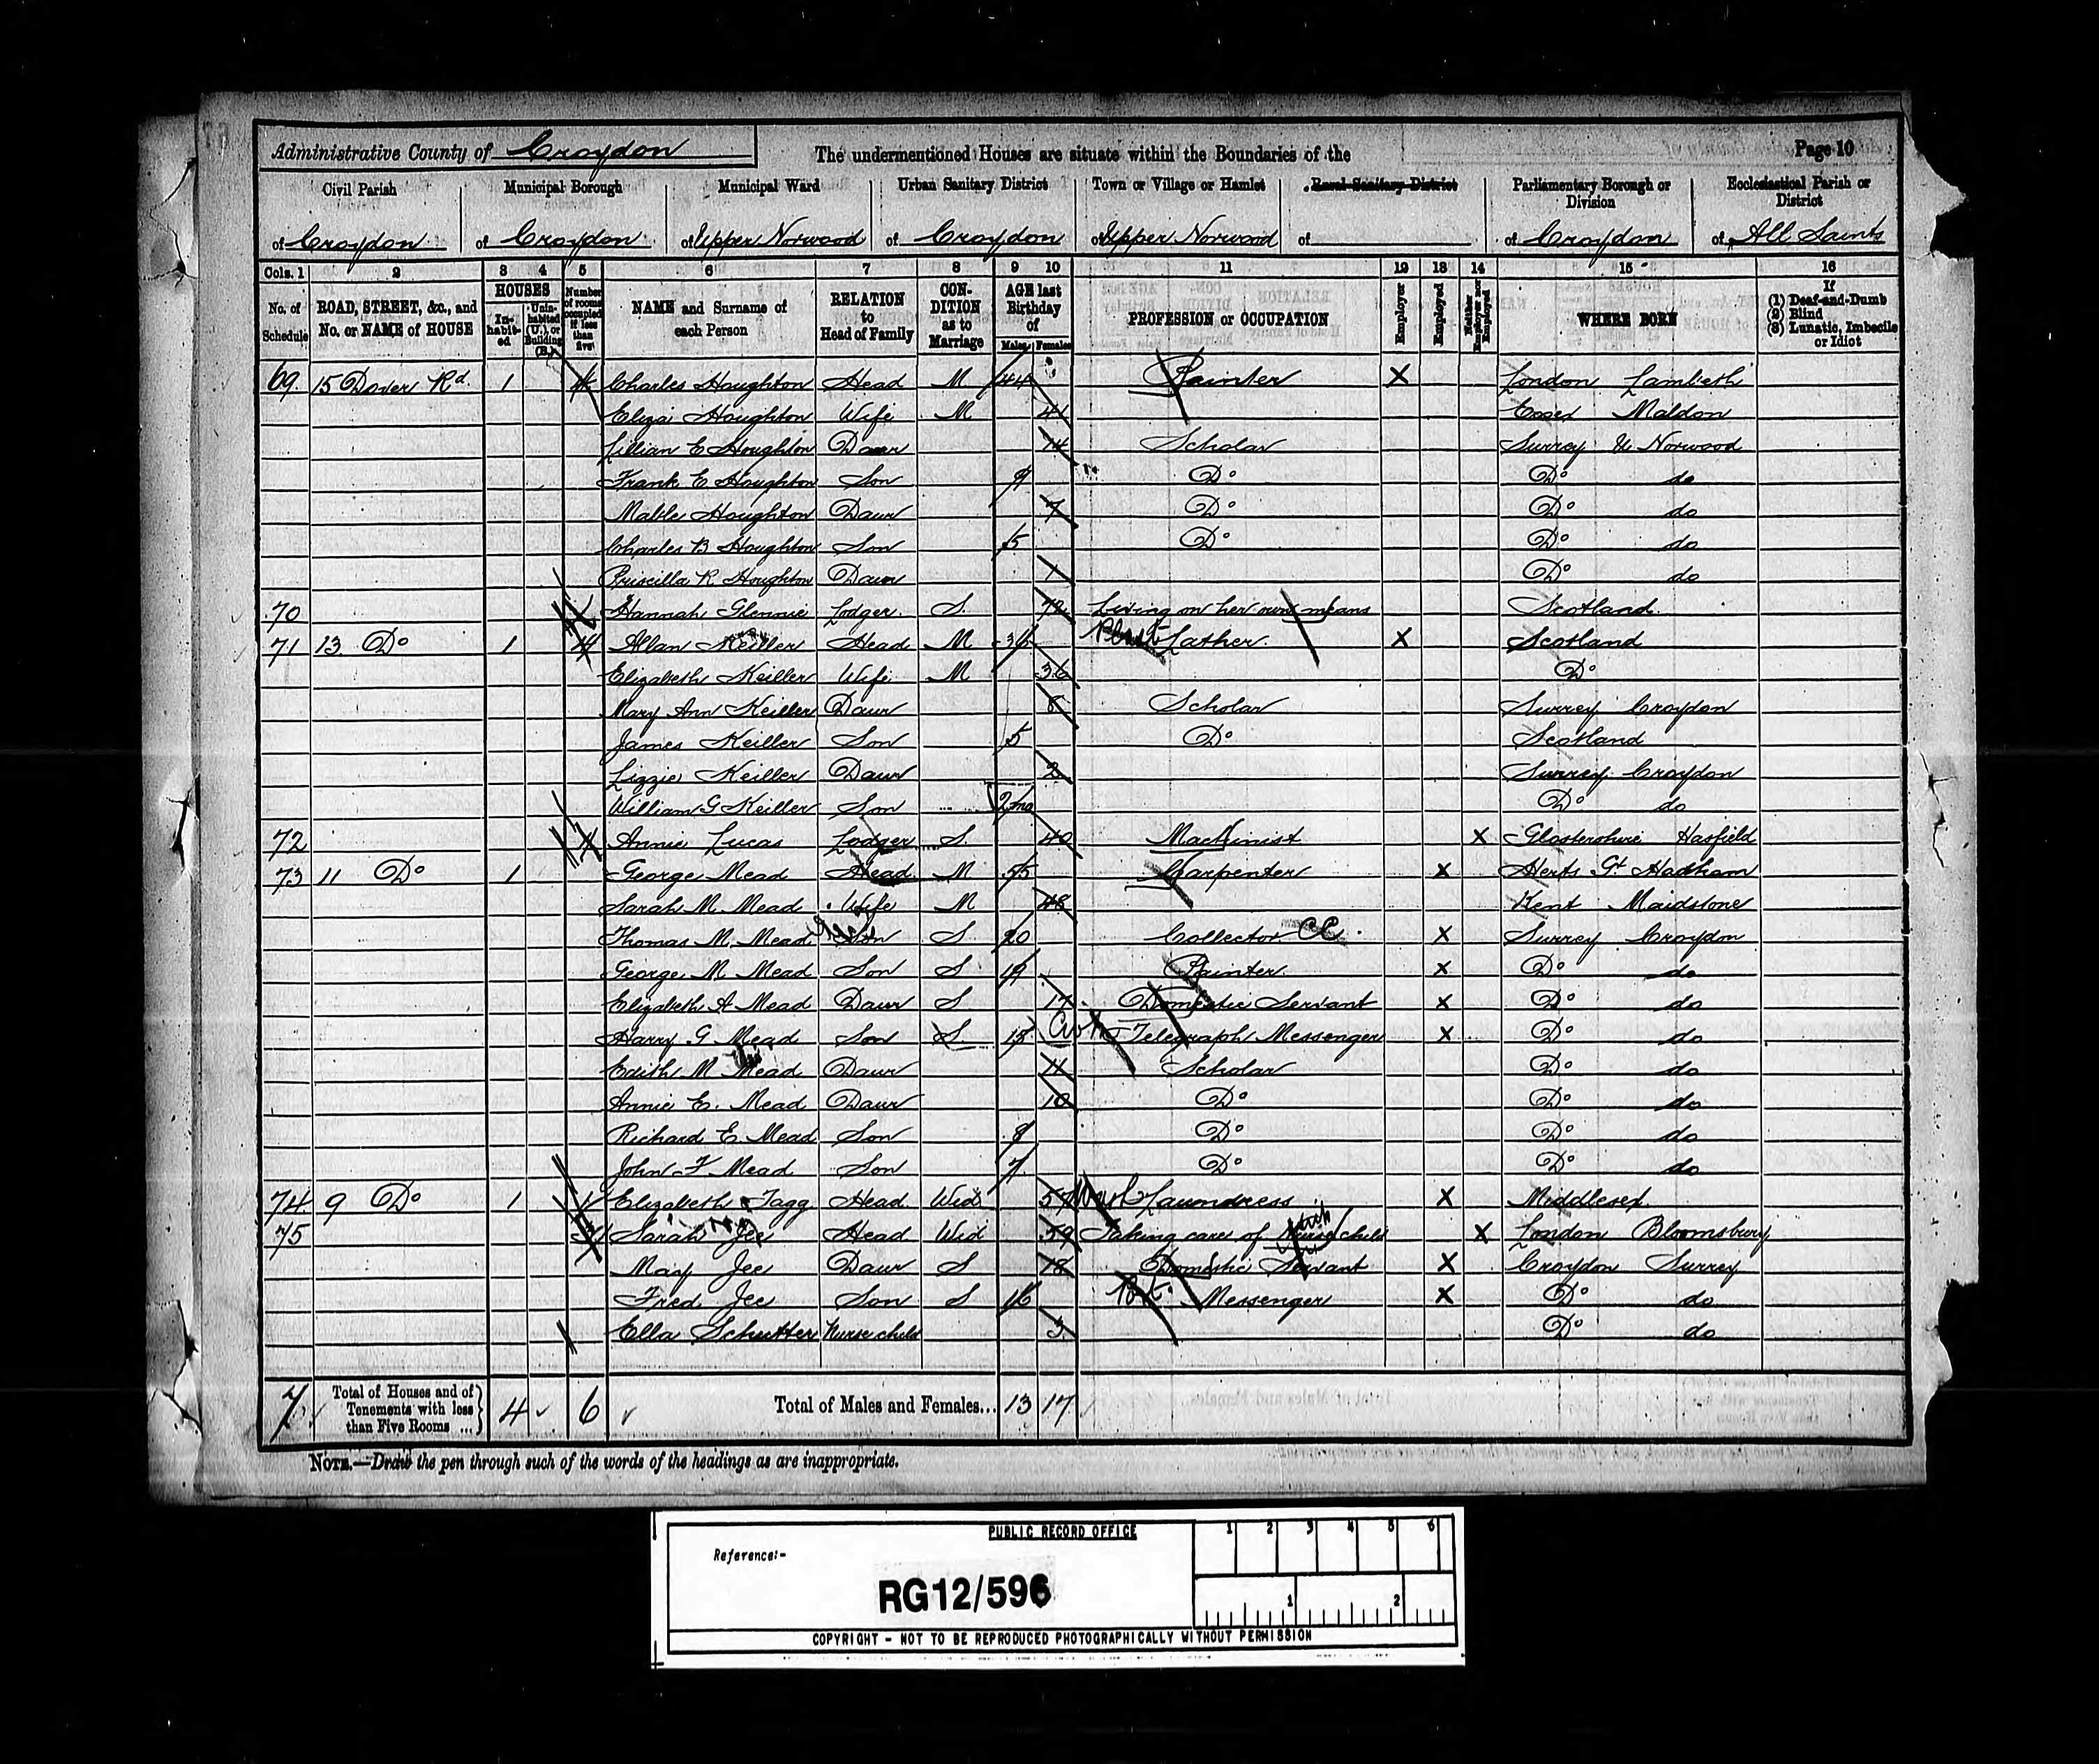 Administrative County of Croydon The undermentioned Houses are situate within the Boundaries of the Page 10
Civil Parish Municipal Borough Municipal Ward Urban Sanitary District Town or Village or Hamlet Rural Sanitary District Parliamentary Borough or Division Ecclesiastical Parish or District
of Croydon of Croydon of Upper Norwood of Croydon of Upper Norwood of of Croydon of All Saints
Cols. 1 2 3 4 5 6 7 8 9 10 11 12 13 14 15 16
No. of Schedule ROAD, STREET, &c., and No. or NAME of HOUSE HOUSES Inhabited Uninhabited (U.) or Building (B.) Number of rooms occupied if less than five NAME and Surname of each Person RELATION to Head of Family CONDITION as to Marriage AGE last Birthday of Males Females PROFESSION or OCCUPATION Employer Employed Neither Employer nor Employed WHERE BORN If (1) Deaf-and-Dumb (2) Blind (3) Lunatic, Imbecile or Idiot
69 15 Dover Rd 1 4 Charles Houghton Head M 44 Painter X London Lambeth
Eliza Houghton Wife M 41 Essex Maldon
Lillian E Houghton Daur 14 Scholar Surrey U Norwood
Frank E Houghton Son 9 Do Do do
Mable Houghton Daur 7 Do Do do
Charles B Houghton Son 5 Do Do do
Priscilla R Houghton Daur 1 Do do
70 Hannah Glennie Lodger S 72 Living on her own means Scotland
71 13 Do 1 4 Allan Keiller Head M 36 Lather X Scotland
Elizabeth Keiller Wife M 36 Do
Mary Ann Keiller Daur 8 Scholar Surrey Croydon
James Keiller Son 5 Do Scotland
Lizzie Keiller Daur 2 Surrey Croydon
William G Keiller Son 2mo Do do
72 1 Annie Lucas Lodger S 40 Machinist X Glostershire Hasfield
73 11 Do 1 George Mead Head M 55 Carpenter X Herts Gt Hadham
Sarah M Mead Wife M 48 Kent Maidstone
Thomas M Mead Son S 20 Collector CC X Surrey Croydon
George M Mead Son S 19 Painter X Do do
Elizabeth A Mead Daur S 17 Domestic Servant X Do do
Harry G Mead Son S 15 Telegraph Messenger X Do do
Edith M Mead Daur 11 Scholar Do do
Annie E. Mead Daur 10 Do Do do
Richard E Mead Son 8 Do Do do
John F Mead Son 7 Do Do do
74 9 Do 1 1 Elizabeth Tagg Head Wid 57 Wash Laundress X Middlesex
75 Sarah Jee Head Wid 59 Taking care of Nurse child X London Bloomsbury
May Jee Daur S 18 Domestic Servant X Croydon Surrey
Fred Jee Son S 16 Messenger X Do do
Ella Schutter Nurse child 3 Do do
7 Total of Houses and of Tenements with less than Five Rooms ... 4 6 Total of Males and Females... 13 17
NOTE.—Draw the pen through such of the words of the headings as are inappropriate.
PUBLIC RECORD OFFICE 1 2 3 4 5 6
Reference:-
RG12/596 1 2
COPYRIGHT - NOT TO BE REPRODUCED PHOTOGRAPHICALLY WITHOUT PERMISSION